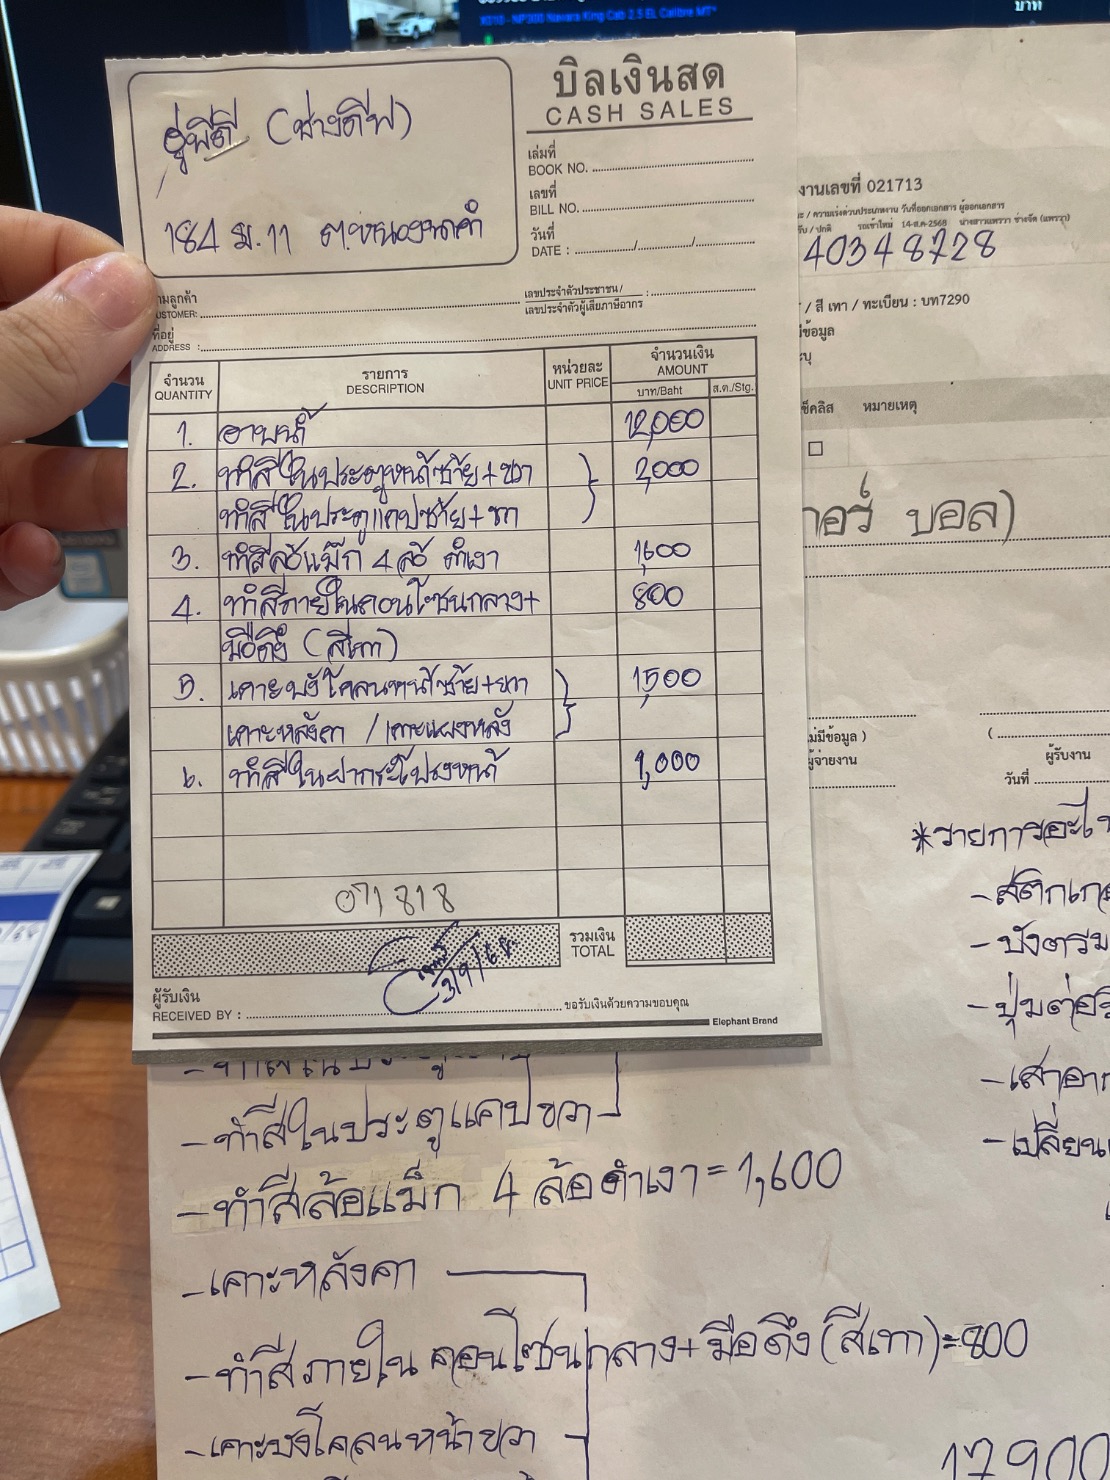 X010 - NP300 Navara King Cab 2.5 EL Calibre MT*
บาท
อู่พีดี (ช่างดีฟ)
184 ม.11 ต.หนองนาคำ
บิลเงินสด
CASH SALES
เล่มที่
BOOK NO.
เลขที่
BILL NO.
วันที่
DATE : / /
ามลูกค้า
CUSTOMER:
เลขประจำตัวประชาชน /
เลขประจำตัวผู้เสียภาษีอากร :
ที่อยู่
ADDRESS :
จำนวน
QUANTITY
รายการ
DESCRIPTION
หน่วยละ
UNIT PRICE
จำนวนเงิน
AMOUNT
บาท/Baht ส.ต./Stg.
1. อาบน้ำ 12,000
2. ทำสีในประตูหน้าซ้าย+ขวา 2,000
ทำสีในประตูแคปซ้าย+ขวา
3. ทำสีล้อแม็ก 4 ล้อ ดำเงา 1,600
4. ทำสีภายในคอนโซนกลาง+ 800
มือดึง (สีเทา)
5. เคาะบังโคลนหน้าซ้าย+ขวา 1,500
เคาะหลังคา / เคาะแผงหลัง
6. ทำสีในฝากระโปรงหน้า 1,000
071818
รวมเงิน
TOTAL
3/9/68
ผู้รับเงิน
RECEIVED BY :
ขอรับเงินด้วยความขอบคุณ
Elephant Brand
งานเลขที่ 021713
/ ความเร่งด่วนประเภทงาน วันที่ออกเอกสาร ผู้ออกเอกสาร
/ ปกติ รถเข้าใหม่ 14-ส.ค-2568
40348728
/ สี เทา / ทะเบียน : บท7290
ข้อมูล
บุ
ช็คลิส หมายเหตุ
บอล)
ไม่มีข้อมูล )
ผู้จ่ายงาน
(
ผู้รับงาน
วันที่
*รายการอะไห
-สติกเกอ
-บังตรีม
-ปุ่มต่อ
-เสาอาก
-เปลี่ยน
-ทำสีในประตูแคปขวา
-ทำสีล้อแม็ก 4 ล้อดำเงา=1,600
-เคาะหลังคา
-ทำสีภายใน คอนโซนกลาง+มือดึง(สีเทา)=800
-เคาะบังโคลนหน้าขวา
17,900